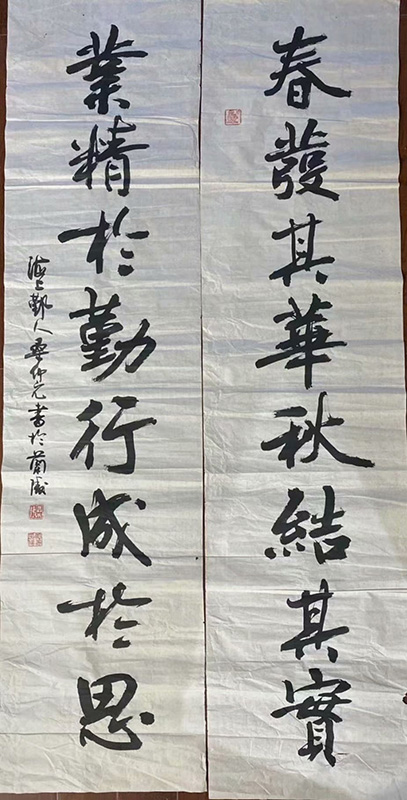 春發其華秋結其實
業精於勤行成於思
海上鄞人
仲元書於蘭盛